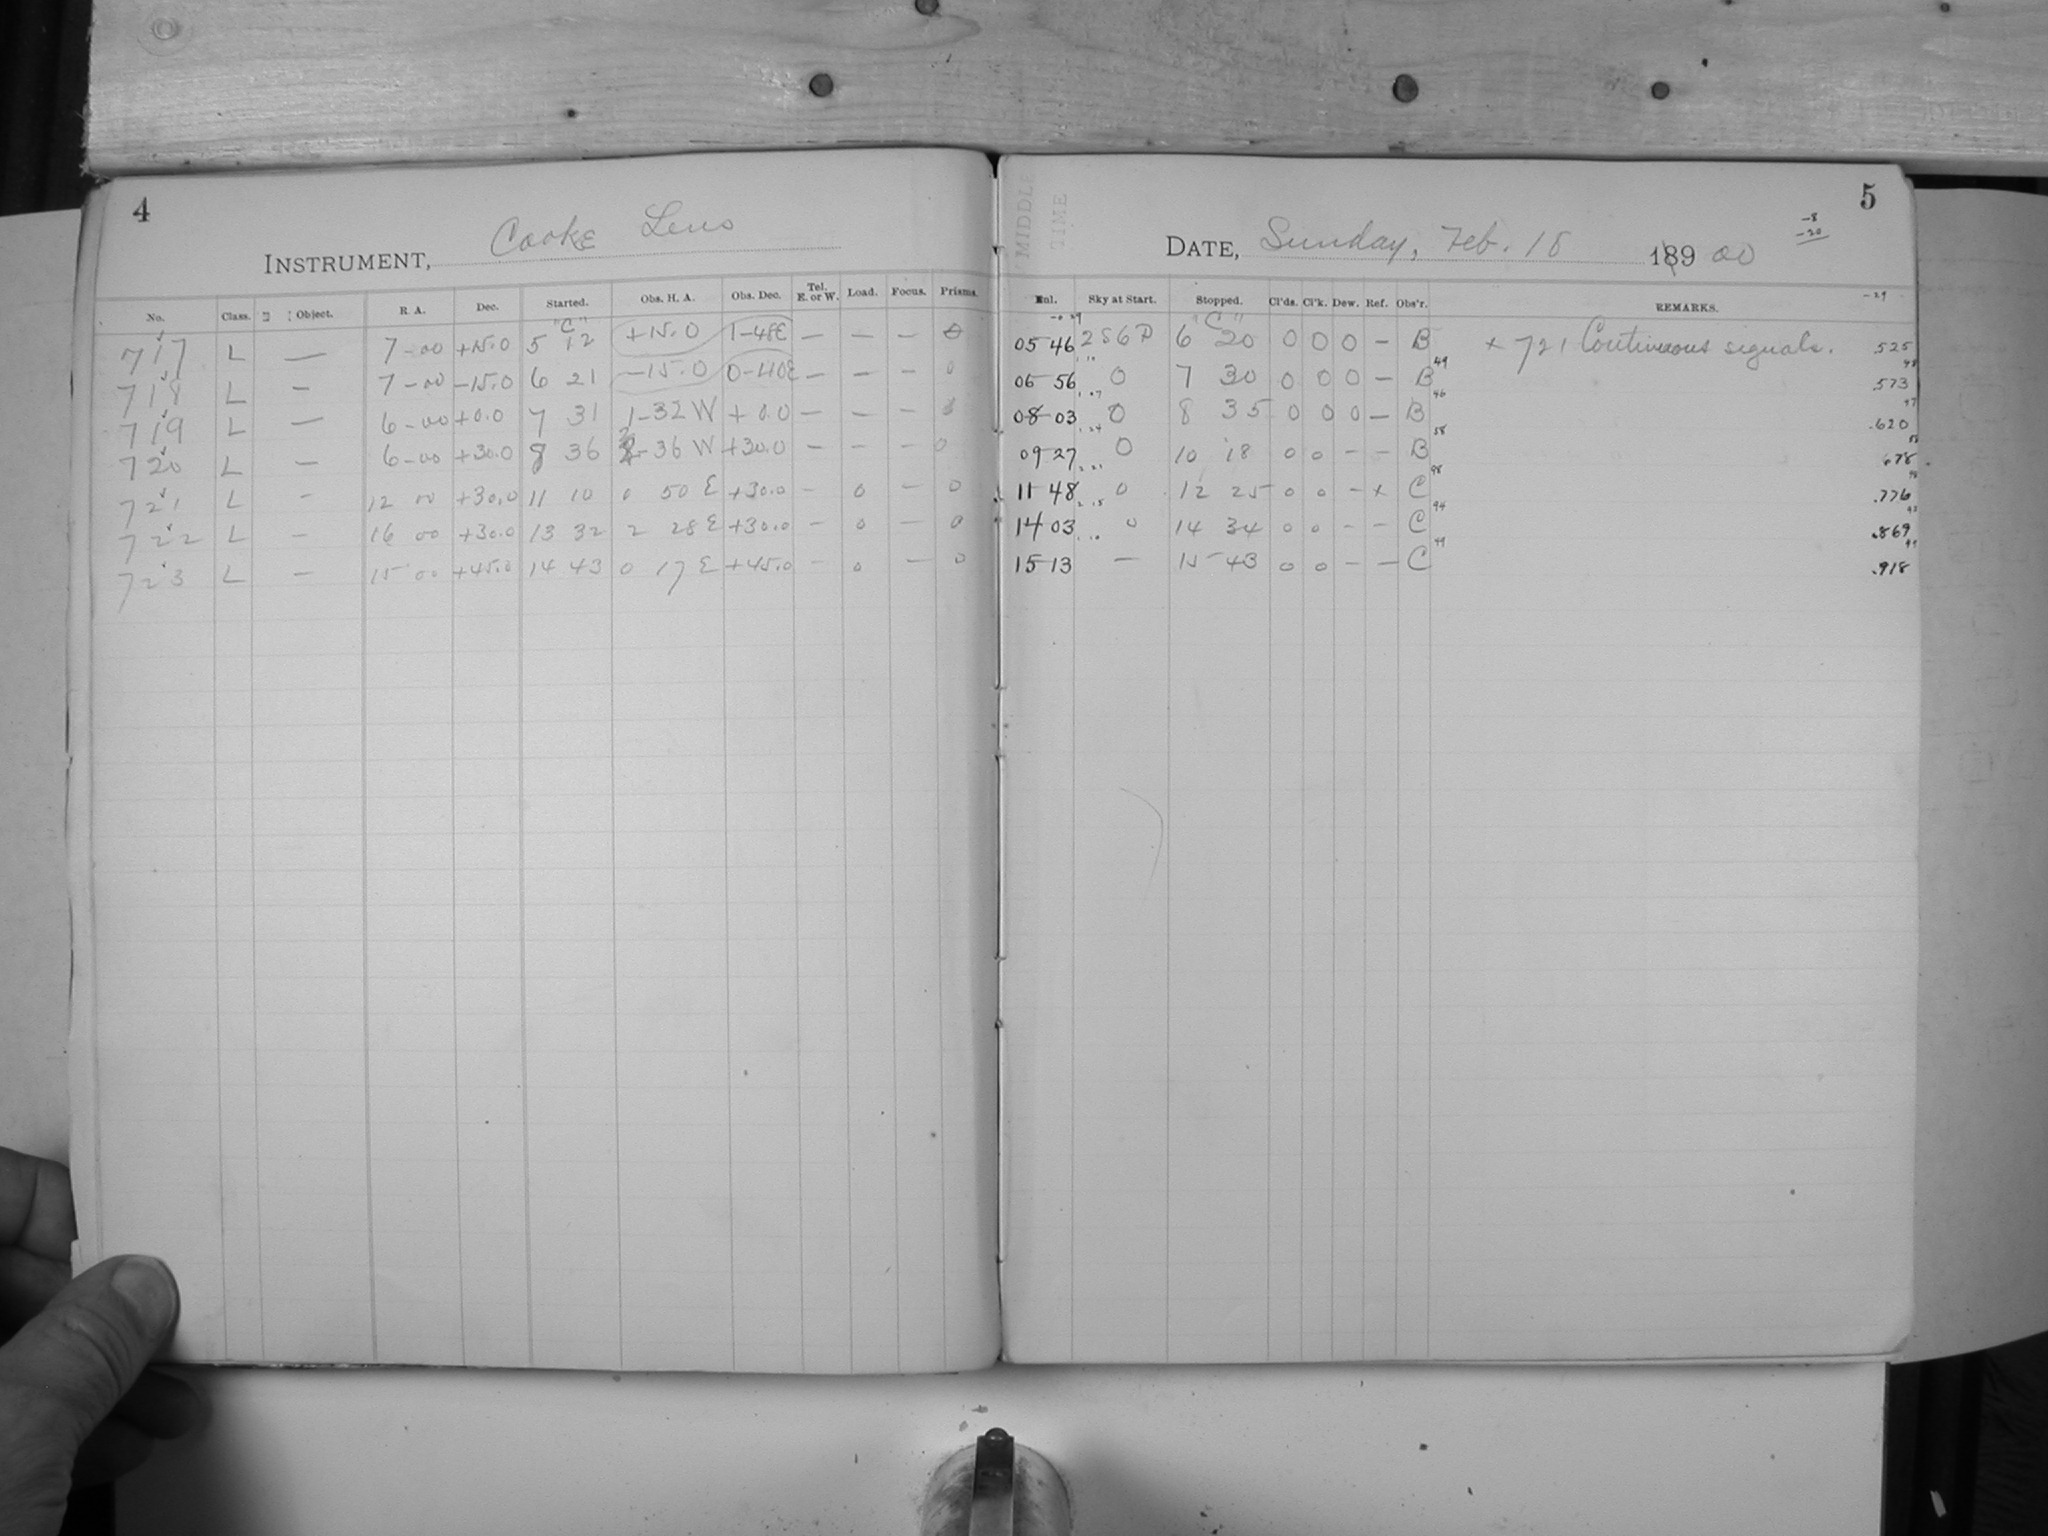 4
INSTRUMENT, Cooke Lens
No. Class. Object. R. A. Dec. Started. Obs. H. A. Obs. Dec. Tel. E. or W. Load. Focus. Prisms.
"C"
717 L — 7-00 +15.0 5 12 +15.0 1-48E — — — 0
718 L — 7-00 -15.0 6 21 -15.0 0-40E — — — 0
719 L — 6-00 +0.0 7 31 1-32 W +0.0 — — — 0
720 L — 6-00 +30.0 8 36 2-36 W +30.0 — — — 0
721 L — 12 00 +30.0 11 10 0 50 E +30.0 — 0 — 0
722 L — 16 00 +30.0 13 32 2 28 E +30.0 — 0 — 0
723 L — 15 00 +45.0 14 43 0 17 E +45.0 — 0 — 0
MIDDLE
TIME
5
-8
-20
DATE, Sunday, Feb. 18 189 00
-29
Sky at Start. Stopped. Cl'ds. Cl'k. Dew. Ref. Obs'r. REMARKS.
"C"
05 46 2S6P 6 20 0 0 0 — B × 721 Continuous signals. .525
49 48
06 56 0 7 30 0 0 0 — B .573
46 47
08 03 0 8 35 0 0 0 — B .620
58
09 27 0 10 18 0 0 — — B .678
98 98
11 48 0 12 25 0 0 — × C .776
94 93
14 03 0 14 34 0 0 — — C .869
49 49
15 13 — 15 43 0 0 — — C .918